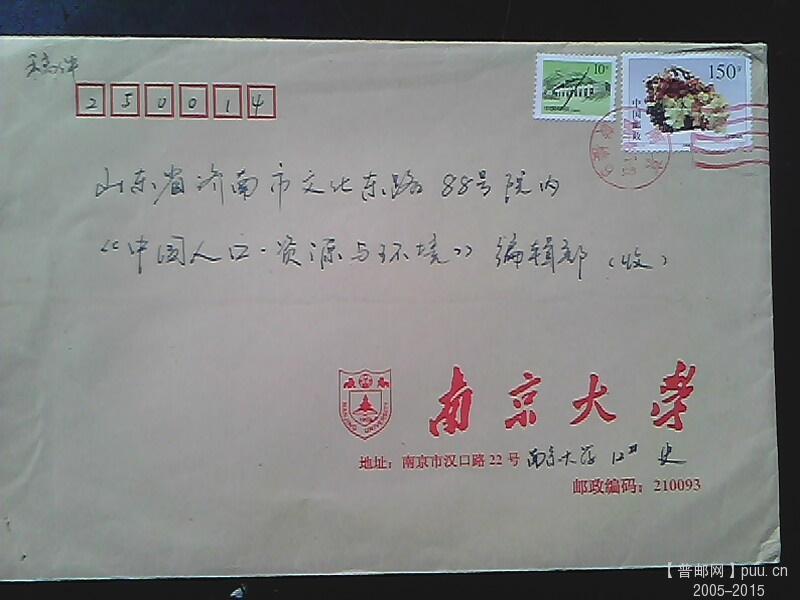 250014
10分
150分
中国邮政
山东省济南市文化东路88号院内
《中国人口·资源与环境》编辑部(收)
NANJING UNIVERSITY
南京大学
地址：南京市汉口路22号 南京大学 史
邮政编码：210093
【普邮网】puu.cn
2005-2015